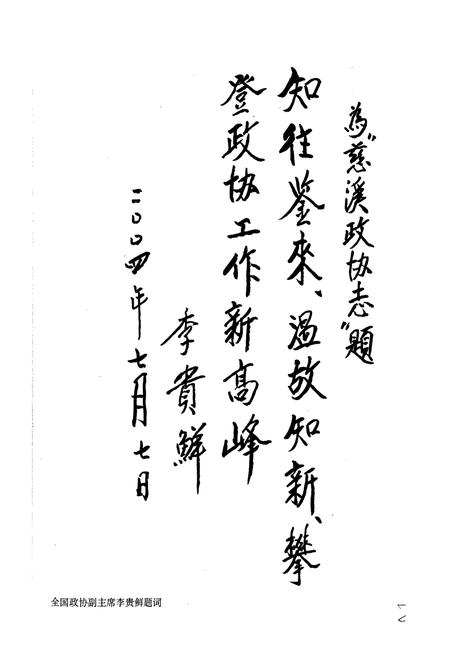 為“慈溪政协志”題
知往鉴來、温故知新、攀
登政协工作新高峰
李貴鮮
二〇〇四年七月七日
全国政协副主席李贵鲜题词